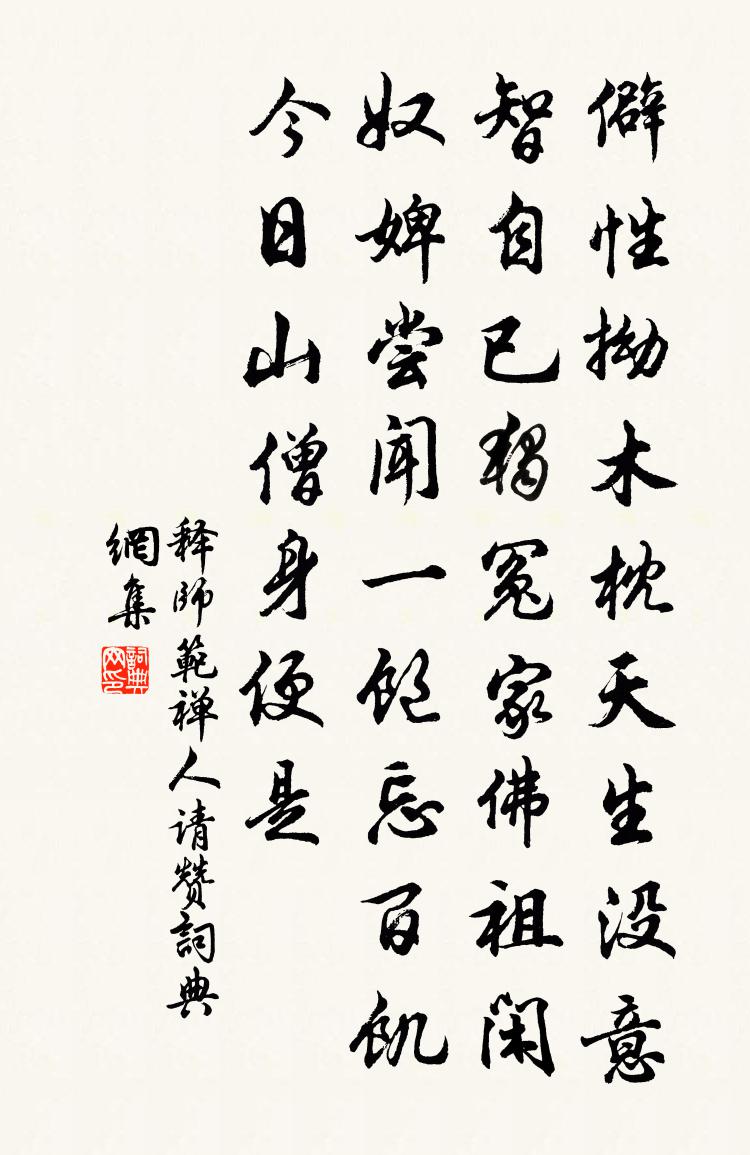 僻性拗木枕天生没意
智自已獨冤家佛祖閑
奴婢尝闻一飽忘百飢
今日山僧身便是
释師範禅人请赞詞典
網集
詞典
网印